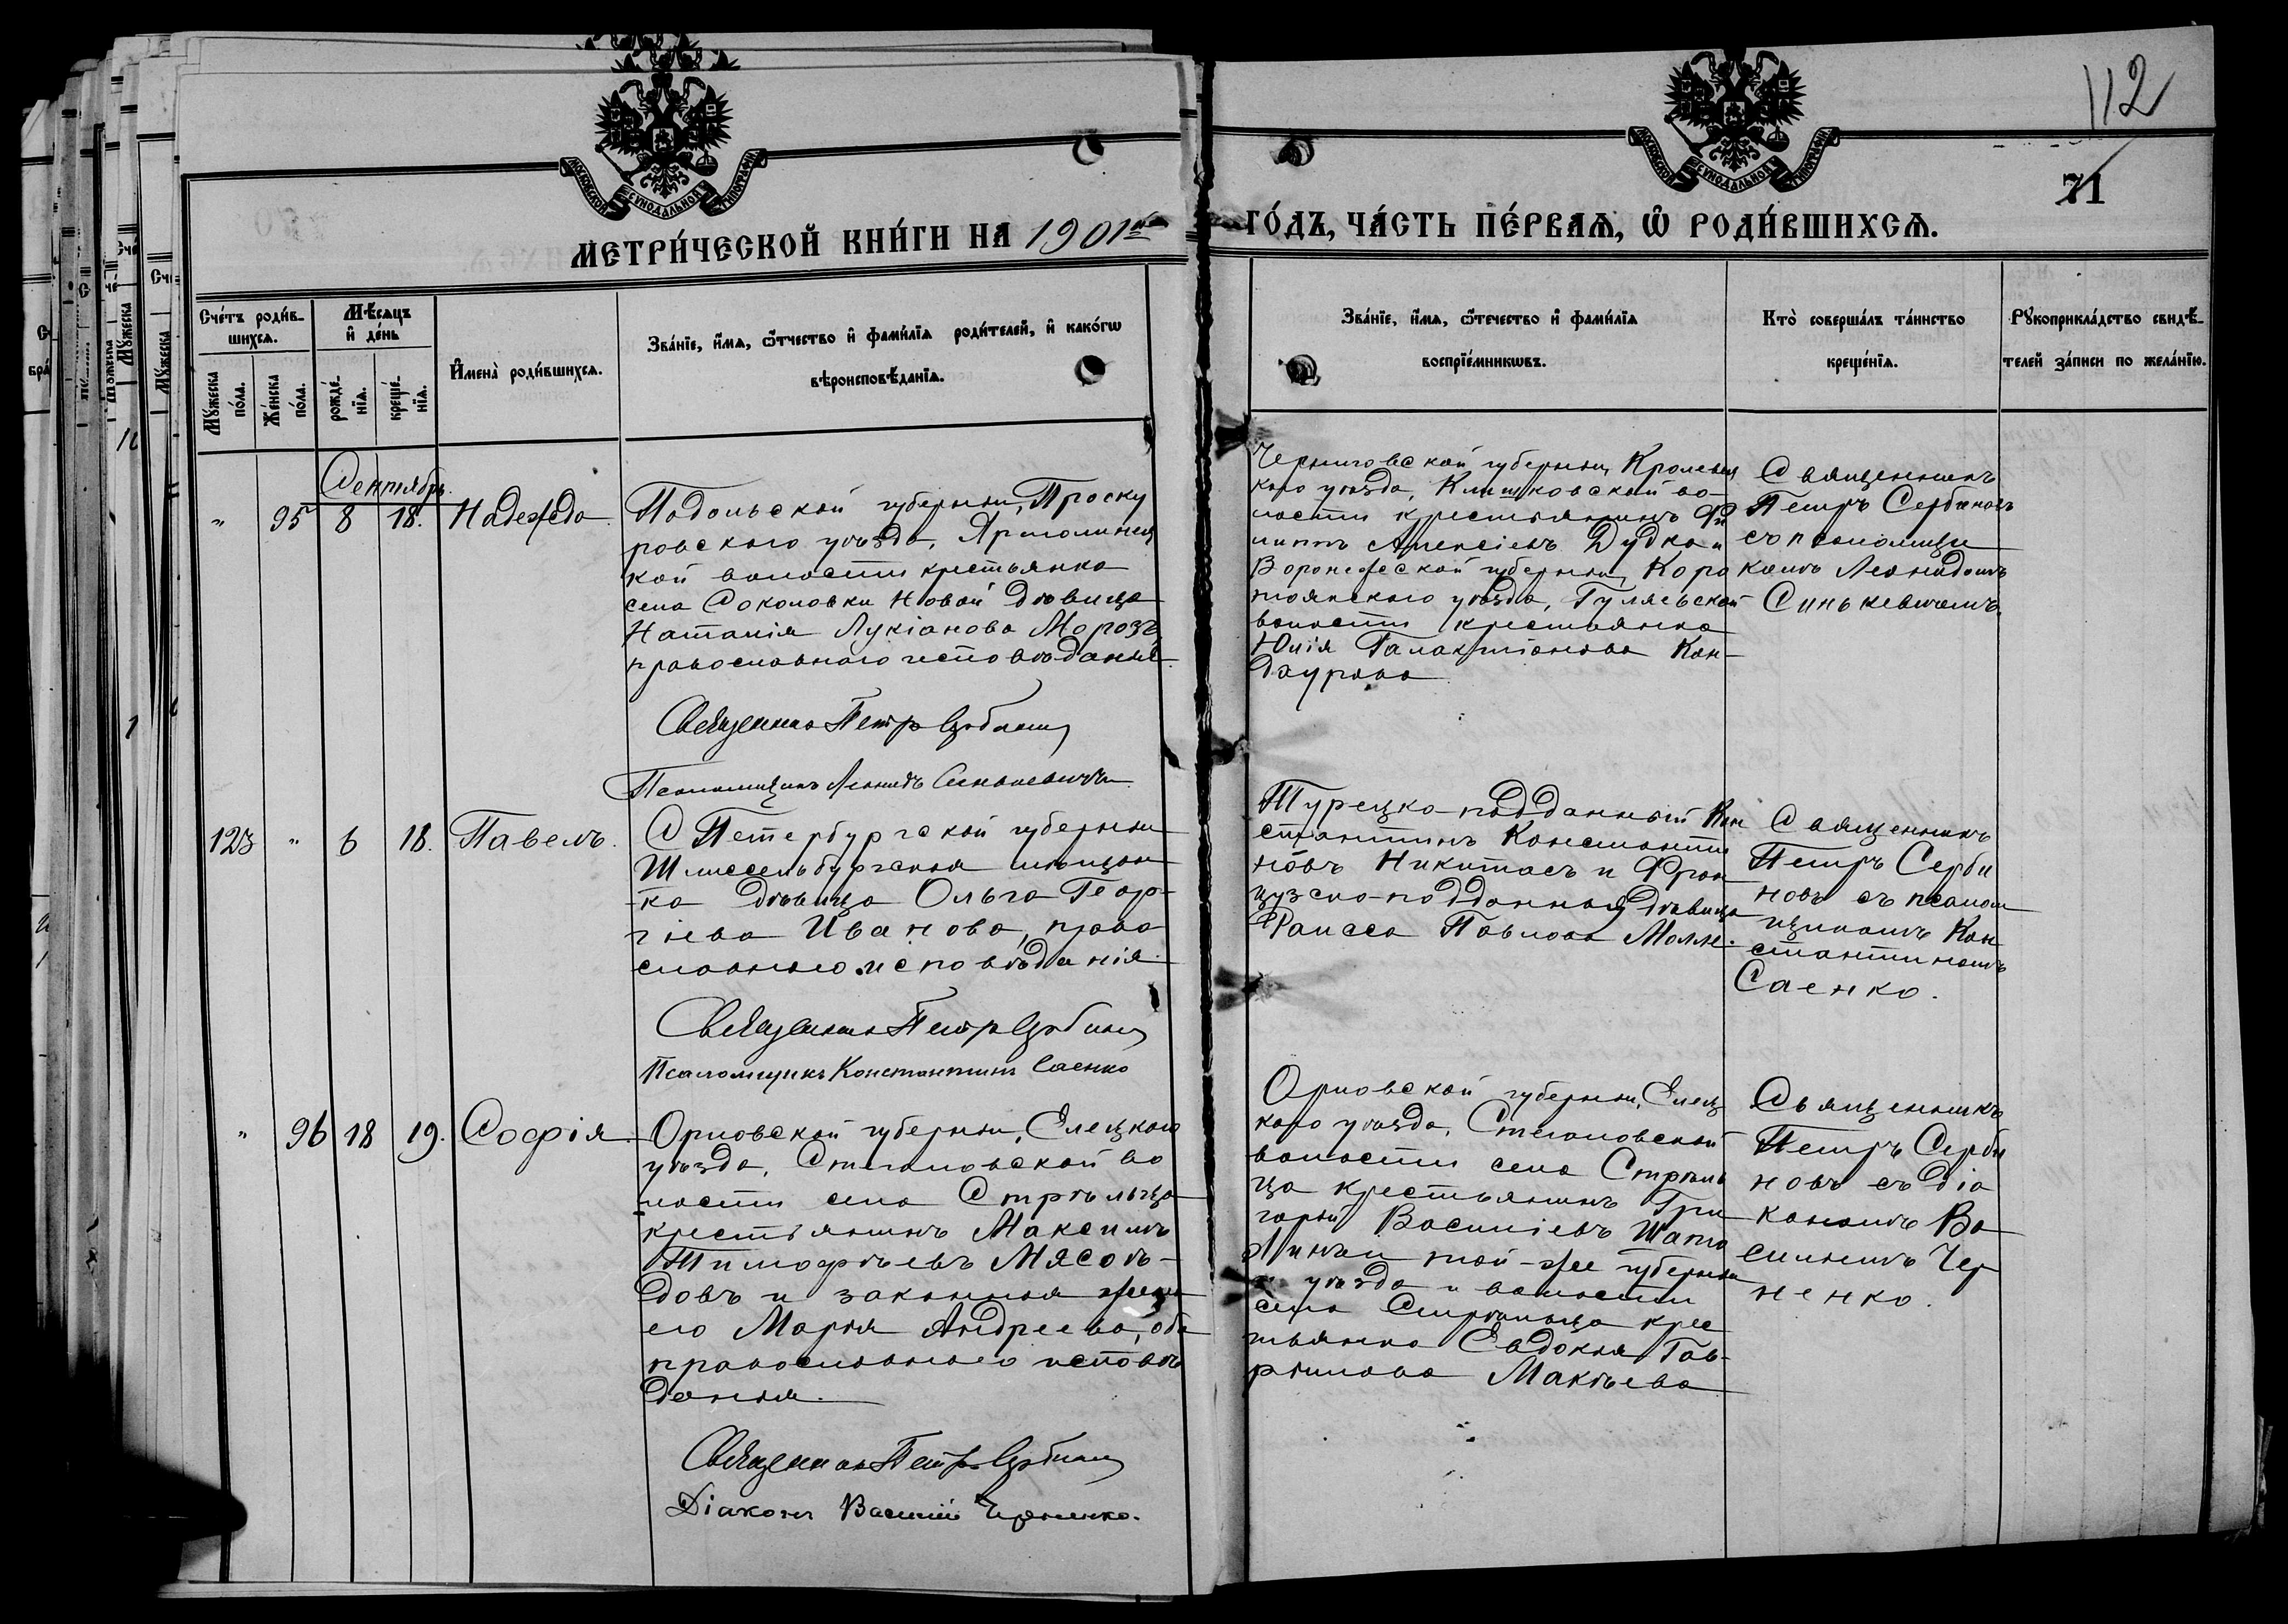 112
71
МОСКОВСКОЙ СУНОДАЛЬНОЙ ТИПОГРАФІИ
МОСКОВСКОЙ СУНОДАЛЬНОЙ ТИПОГРАФІИ
МЕТРИ́ЧЕСКОЙ КНИ́ГИ НА 1901й
ГО́ДЪ, ЧА́СТЬ ПЕ́РВАѦ, Ѡ҆ РОДИ́ВШИХСѦ.
Сче́тъ роди́в-
шихсѧ.
Мꙋ́жеска по́ла.
Же́нска по́ла.
Мѣ́сѧцъ и҆ де́нь
рожде́-нїѧ.
креще́-нїѧ.
И҆мена̀ роди́вшихсѧ.
Зва́нїе, и҆́мѧ, ѻ҆́тчество и҆ фамѝлїѧ роди́телей, и҆ како́гѡ
вѣроисповѣ́данїѧ.
Зва́нїе, и҆́мѧ, ѻ҆́течество и҆ фамѝлїѧ
воспрїе́мникѡвъ.
Кто̀ соверша́лъ та́инство
креще́нїѧ.
Рꙋкоприкла́дство свидѣ́-
телей за́писи по жела́нїю.
Сентябрь.
" 95 8 18. Надежда.
Подольской губерніи, Проску
ровскаго уѣзда, Ярмолинец
кой волости крестьянка
села Соколовки Новой дѣвица
Наталія Лукіанова Морозъ,
православнаго исповѣданія.
Священникъ Петръ Сербиновъ
Псаломщикъ Леонидъ Синькевичъ
Черниговской губерніи, Кролевец
каго уѣзда, Клишковской во-
лости крестьянинъ Фи
липпъ Алексіевъ Дудка и
Воронежской губерніи, Коро
тоякскаго уѣзда,
волости крестьянка
Юлія Галактіонова Кан-
даурова
Священникъ
Петръ Сербиновъ
съ псаломщи
комъ Леонидомъ
Синькевичемъ.
123 " 6 18. Павелъ.
С Петербургской губерніи
Шлиссельбургская мѣщан
ка дѣвица Ольга Геор-
гіева Иванова, право
славнаго исповѣданія.
Священникъ Петръ Сербиновъ
Псаломщикъ Константинъ Саенко
Турецко-подданный Кон
стантинъ Константи
новъ Никитасъ и Фран
цузско-подданная дѣвица
Раисса Павлова Молле.
Священникъ
Петръ Серби
новъ съ псалом
щикомъ Кон
стантиномъ
Саенко.
" 96 18 19. Софія.
Орловской губерніи, Елецкаго
уѣзда, Стегаловской во
лости села Стрѣльца
крестьянинъ Максимъ
Тимофѣевъ Мясоѣ-
довъ и законная жена
его Марія Андреева, оба
православнаго исповѣ
данія.
Священникъ Петръ Сербиновъ
Діаконъ Василій Черненко.
Орловской губерніи, Елец
каго уѣзда, Стегаловской
волости села Стрѣль
ца крестьянинъ Гри
горій Василіевъ
той-же губерніи
и уѣзда и волости
села Стрѣльца крес
тьянка Евдокія Гав-
рилова Макѣева
Священникъ
Петръ Серби
новъ съ діа
кономъ Ва
силіемъ Чер
ненко.